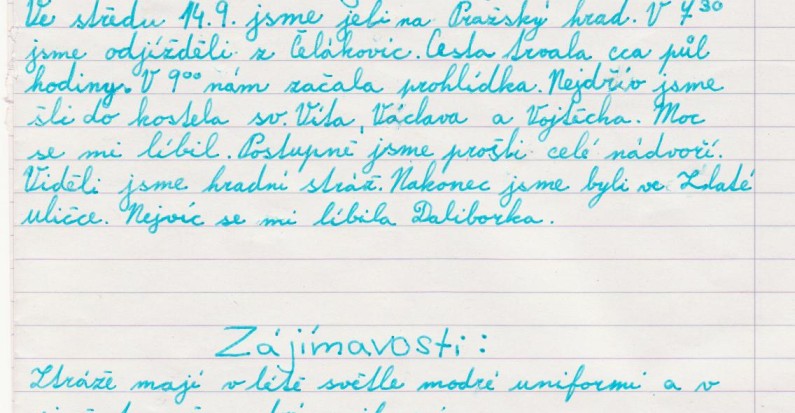 Ve středu 14.9. jsme jeli na Pražský hrad. V 7³⁰
jsme odjížděli z Čelákovic. Cesta trvala cca půl
hodiny. V 9⁰⁰ nám začala prohlídka. Nejdřív jsme
šli do kostela sv. Víta, Václava a Vojtěcha. Moc
se mi líbil. Postupně jsme prošli celé nádvoří.
Viděli jsme hradní stráž. Nakonec jsme byli ve Zlaté
uličce. Nejvíc se mi líbila Daliborka.
Zájímavosti:
Stráže mají v létě světle modré uniformi a v